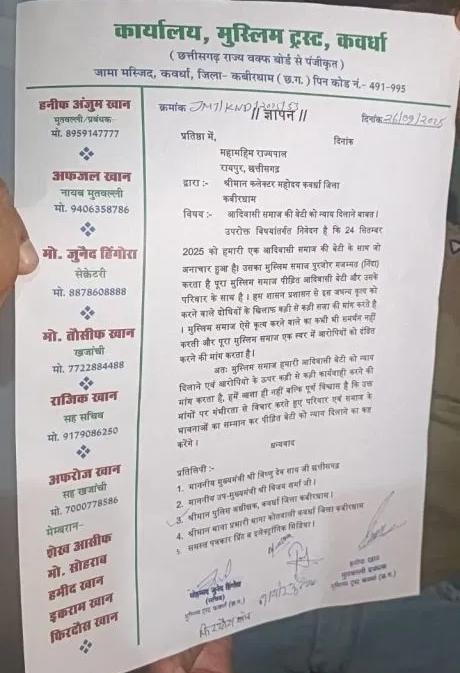 कार्यालय, मुस्लिम ट्रस्ट, कवर्धा
( छत्तीसगढ़ राज्य वक्फ बोर्ड से पंजीकृत )
जामा मस्जिद, कवर्धा, जिला- कबीरधाम (छ.ग.) पिन कोड नं.- 491-995
हनीफ अंजुम खान
मुतवल्ली/प्रबंधक
मो. 8959147777
अफजल खान
नायब मुतवल्ली
मो. 9406358786
मो. जुनैद हिंगोरा
सेक्रेटरी
मो. 8878608888
मो. तौसीफ खान
खजांची
मो. 7722884488
राजिक खान
सह सचिव
मो. 9179086250
अफरोज खान
सह खजांची
मो. 7000778586
मेम्बरान-
शेख आसीफ
मो. सोहराब
हमीद खान
इकराम खान
फिरदौस खान
क्रमांक JMT/KND/2025/53
// ज्ञापन //
दिनांक 26/09/2025
प्रतिष्ठा में,
दिनांक
महामहिम राज्यपाल
रायपुर, छत्तीसगढ़
द्वारा :- श्रीमान कलेक्टर महोदय कवर्धा जिला
कबीरधाम
विषय :- आदिवासी समाज की बेटी को न्याय दिलाने बाबत।
उपरोक्त विषयांतर्गत निवेदन है कि 24 सितम्बर
2025 को हमारी एक आदिवासी समाज की बेटी के साथ जो
अनाचार हुआ है। उसका मुस्लिम समाज पुरजोर मजम्मत (निंदा)
करता है पूरा मुस्लिम समाज पीड़ित आदिवासी बेटी और उसके
परिवार के साथ है। हम शासन प्रशासन से इस जघन्य कृत्य को
करने वाले दोषियों के खिलाफ कड़ी से कड़ी सजा की मांग करते है
। मुस्लिम समाज ऐसे कृत्य करने वाले का कभी भी समर्थन नहीं
करती और पूरा मुस्लिम समाज एक स्वर में आरोपियों को दंडित
करने की मांग करता है।
अतः मुस्लिम समाज हमारी आदिवासी बेटी को न्याय
दिलाने एवं आरोपियो के ऊपर कड़ी से कड़ी कार्यवाही करने की
मांग करता है, हमें आशा ही नहीं बल्कि पूर्ण विश्वास है कि उक्त
मांगों पर गंभीरता से विचार करते हुए परिवार एवं समाज के
भावनाओं का सम्मान कर पीड़ित बेटी को न्याय दिलाने का कष्ट
करेंगे।
धन्यवाद
प्रतिलिपी :-
1. माननीय मुख्यमंत्री श्री विष्णु देव साय जी छत्तीसगढ़
2. माननीय उप-मुख्यमंत्री श्री विजय शर्मा जी।
3. श्रीमान पुलिस अधीक्षक, कवर्धा जिला कबीरधाम।
4. श्रीमान थाना प्रभारी थाना कोतवाली कवर्धा जिला कबीरधाम
5. समस्त पत्रकार प्रिंट व इलेक्ट्रॉनिक मिडिया।
मोहम्मद जुनैद हिंगोरा
(सचिव)
मुस्लिम ट्रस्ट कवर्धा (छ.ग.)
हनीफ खान
मुतवल्ली प्रबंधक
मुस्लिम ट्रस्ट कवर्धा (छ.ग.)